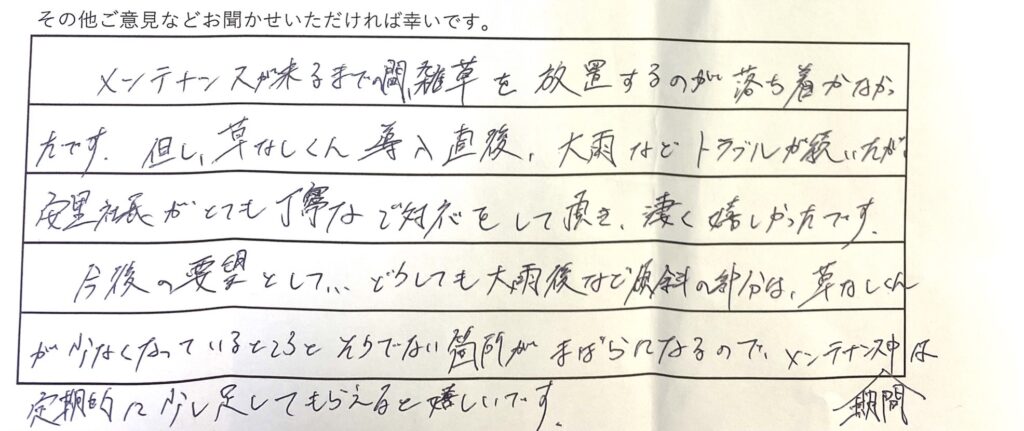 その他ご意見などお聞かせいただければ幸いです。
メンテナンスが来るまでの間、雑草を放置するのが落ち着かなかっ
たです。但し、草なしくん導入直後、大雨などトラブルが続いたが、
安里社長がとても丁寧なご対応をして頂き、凄く嬉しかったです。
今後の要望として… どうしても大雨後など傾斜の部分は、草なしくん
が少なくなっているところとそうでない箇所がまばらになるので、メンテナンス期間中は
定期的に少し足してもらえると嬉しいです。